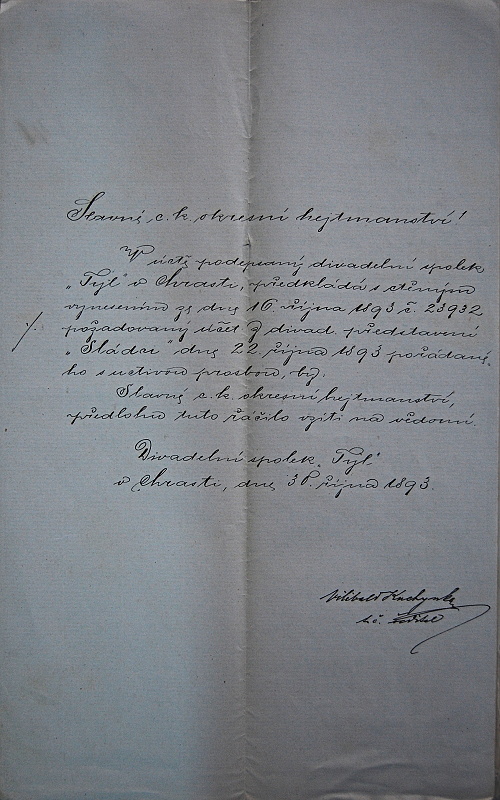 Slavné c. k. okresní hejtmanství!
V úctě podepsaný divadelní spolek
„Tyl" v Chrasti, předkládá s ctěným
vynesením ze dne 16. října 1893 č. 23932
požadovaný účet z divad. představení
./.
„Sládci" dne 22. října 1893 pořádané-
ho s uctivou prosbou, by:
Slavné c. k. okresní hejtmanství,
předlohu tuto ráčilo vzíti na vědomí.
Divadelní spolek „Tyl"
v Chrasti, dne října 1893.
Vilibald Kuchynka
t. č. ředitel